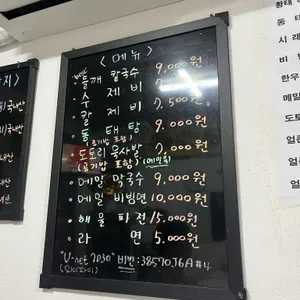 <메뉴>
· 들깨 칼국수 9,000원
· 수 제 비 7,000원
· 칼 제 비 7,500원
· 동 태 탕 9,000원
(공기밥 포함)
· 도토리 묵사발 7,000원
(공기밥 포함)
· 메밀 막국수 9,000원
· 메밀 비빔면 10,000원
· 해물 파전 15,000원
· 라 면 5,000원
"U-net 2030" 비번: 38570J6A#4
(와이파이)
황태
동
시래
비
한우
메밀
도토
얼큰
얼큰